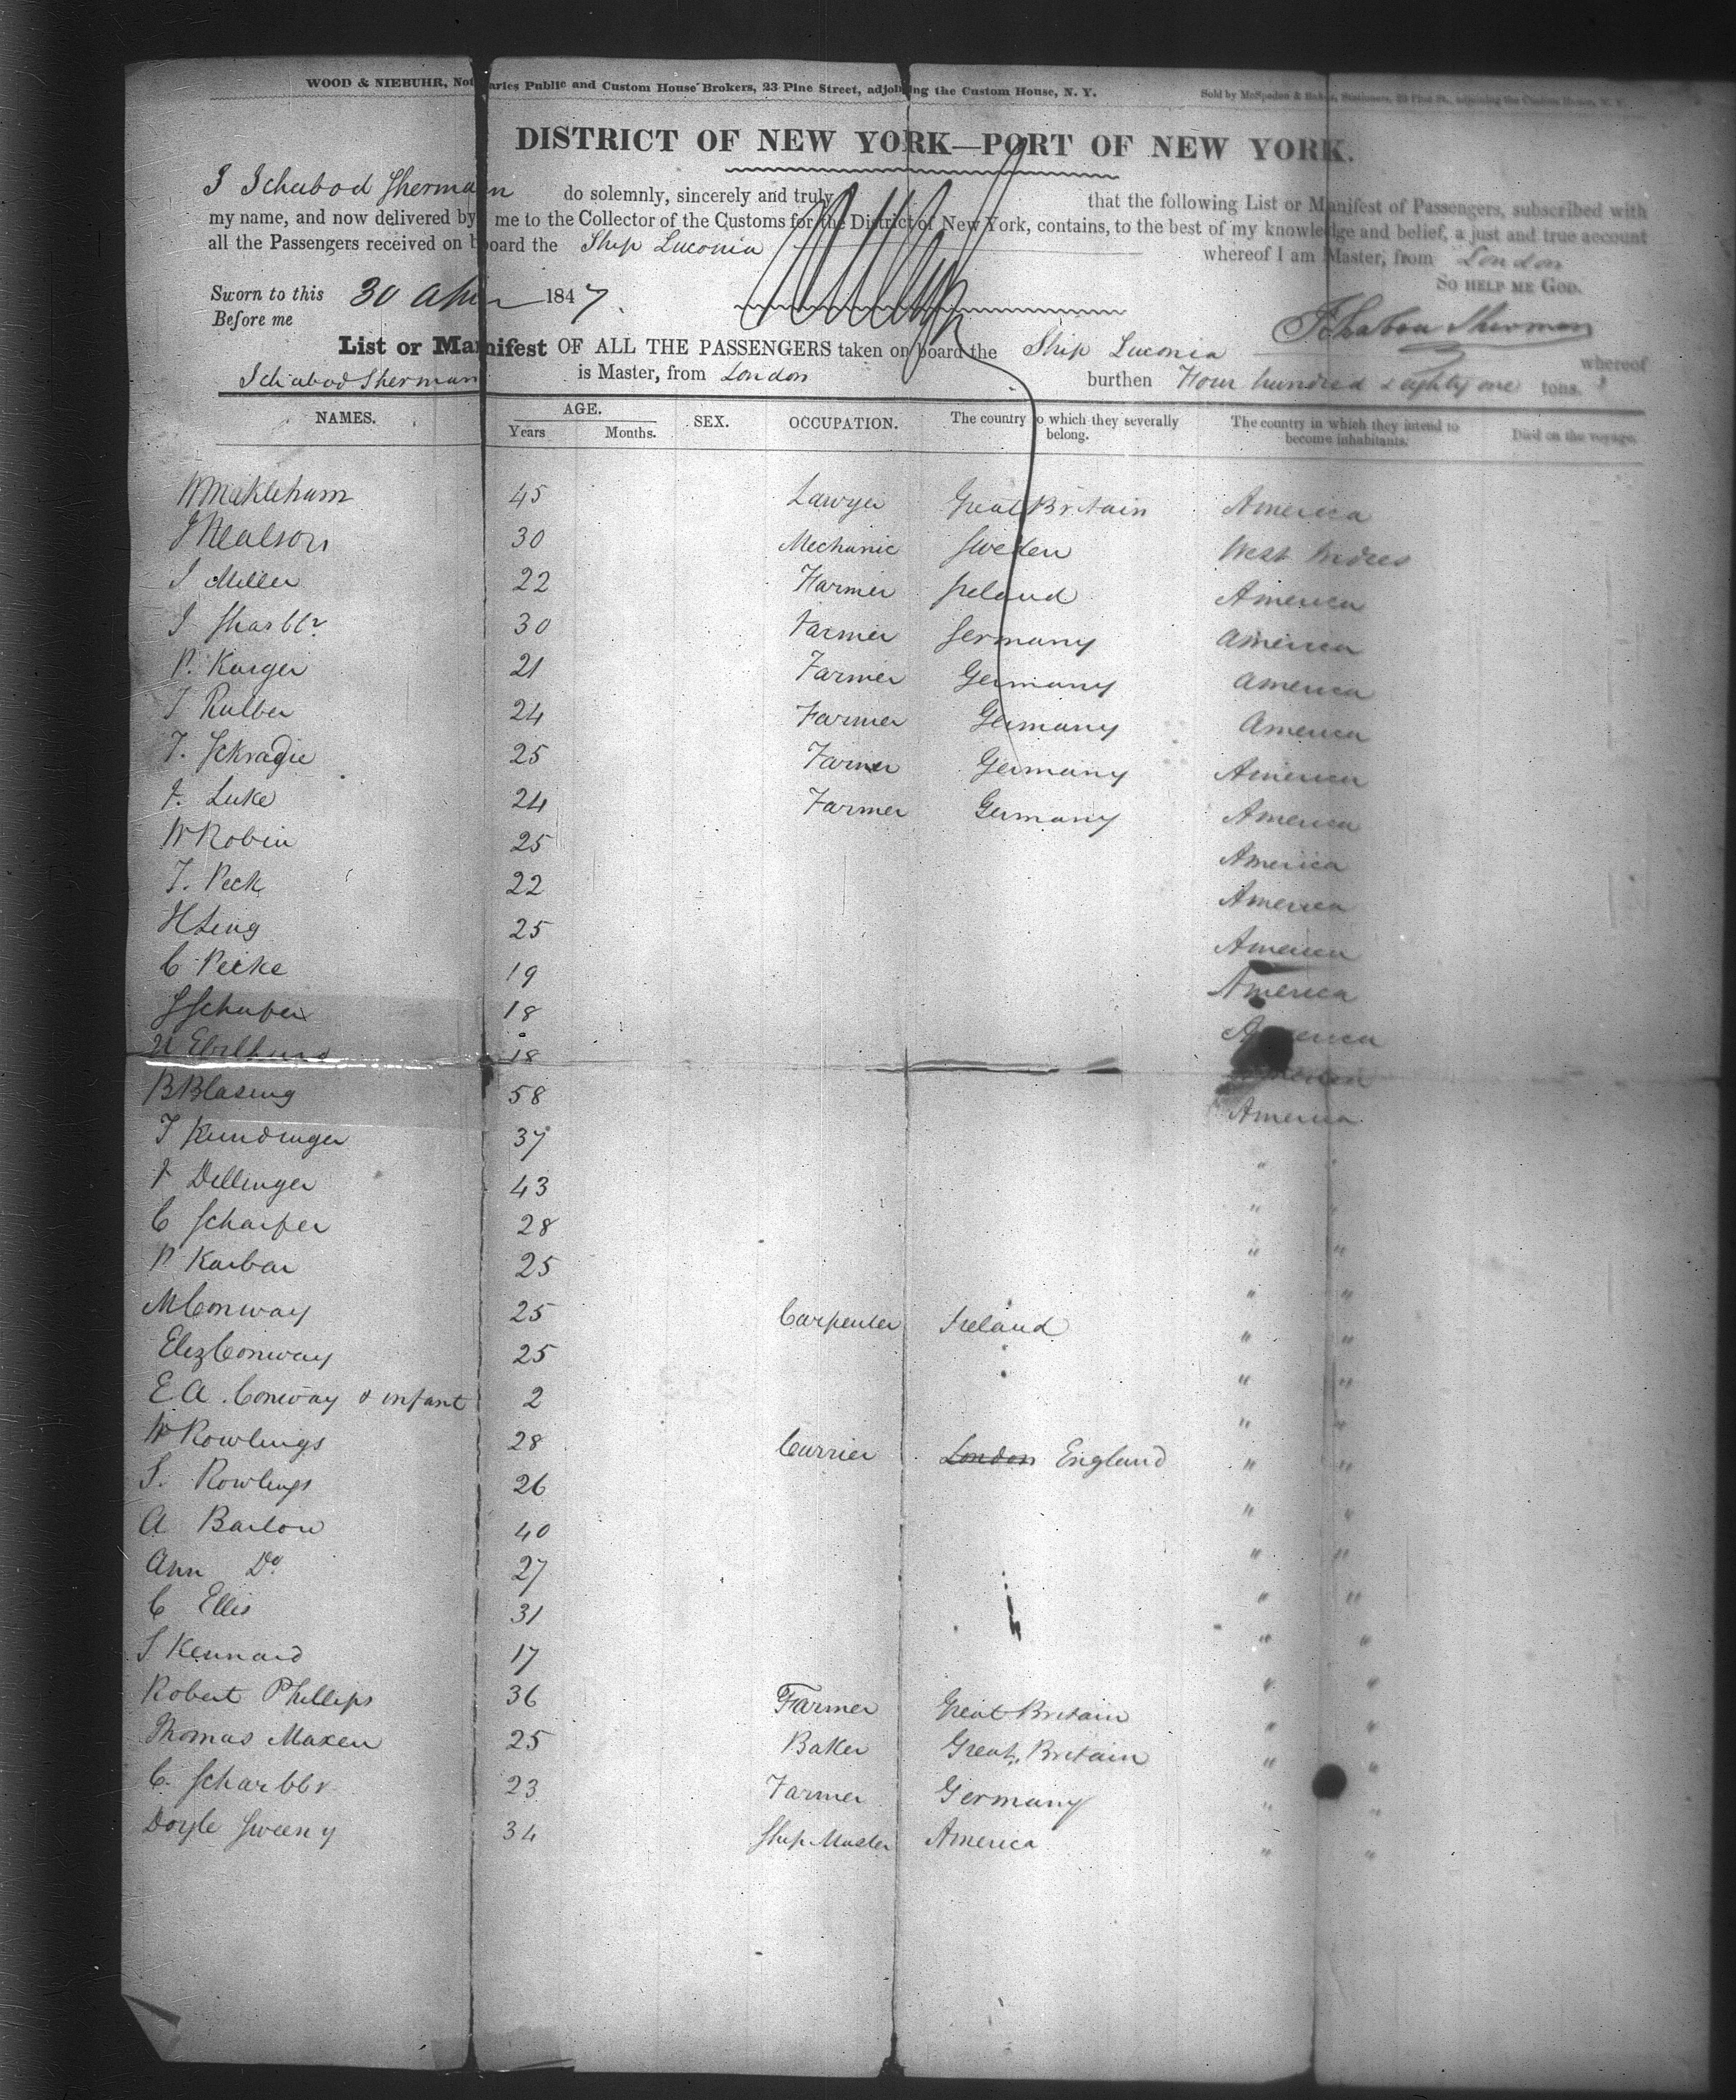 WOOD & NIEBUHR, Notaries Public and Custom House Brokers, 23 Pine Street, adjoining the Custom House, N. Y.
Sold by McSpedon & Baker, Stationers, 25 Pine St., adjoining the Custom House, N. Y.
DISTRICT OF NEW YORK—PORT OF NEW YORK.
I Ichabod Sherman do solemnly, sincerely and truly that the following List or Manifest of Passengers, subscribed with
my name, and now delivered by me to the Collector of the Customs for the District of New York, contains, to the best of my knowledge and belief, a just and true account
all the Passengers received on board the Ship Luconia whereof I am Master, from London
SO HELP ME GOD.
Sworn to this 30 Apr 1847.
Before me
Ichabod Sherman
List or Manifest OF ALL THE PASSENGERS taken on board the Ship Luconia whereof
Ichabod Sherman is Master, from London burthen Four hundred & eighty one tons.
NAMES. AGE. Years Months. SEX. OCCUPATION. The country to which they severally belong. The country in which they intend to become inhabitants. Died on the voyage.
W Makleham 45 Lawyer Great Britain America
J Nealson 30 Mechanic Sweden West Indies
J Miller 22 Farmer Ireland America
J Sharblr 30 Farmer Germany America
P. Karger 21 Farmer Germany America
J Rulber 24 Farmer Germany America
F. Schradie 25 Farmer Germany America
F. Luke 24 Farmer Germany America
W Robin 25 America
T. Peck 22 America
H Ling 25 America
C Peike 19 America
J Schafer 18 America
18 America
B Blasing 58 America
J Kundinger 37 " "
F Dellinger 43 " "
C Scharfer 28 " "
P Karbar 25 " "
M Conway 25 Carpenter Ireland " "
Eliz Conway 25 " "
E. A. Conway & infant 2 " "
W Rowlings 28 Currier London England " "
S. Rowlings 26 " "
A Barlow 40 " "
Ann Do 27 " "
C Ellis 31 " "
S Kennard 17 " "
Robert Phillips 36 Farmer Great Britain " "
Thomas Maxen 25 Baker Great Britain " "
C. Scharbbr 23 Farmer Germany " "
Doyle Sweeny 34 Ship Master America " "